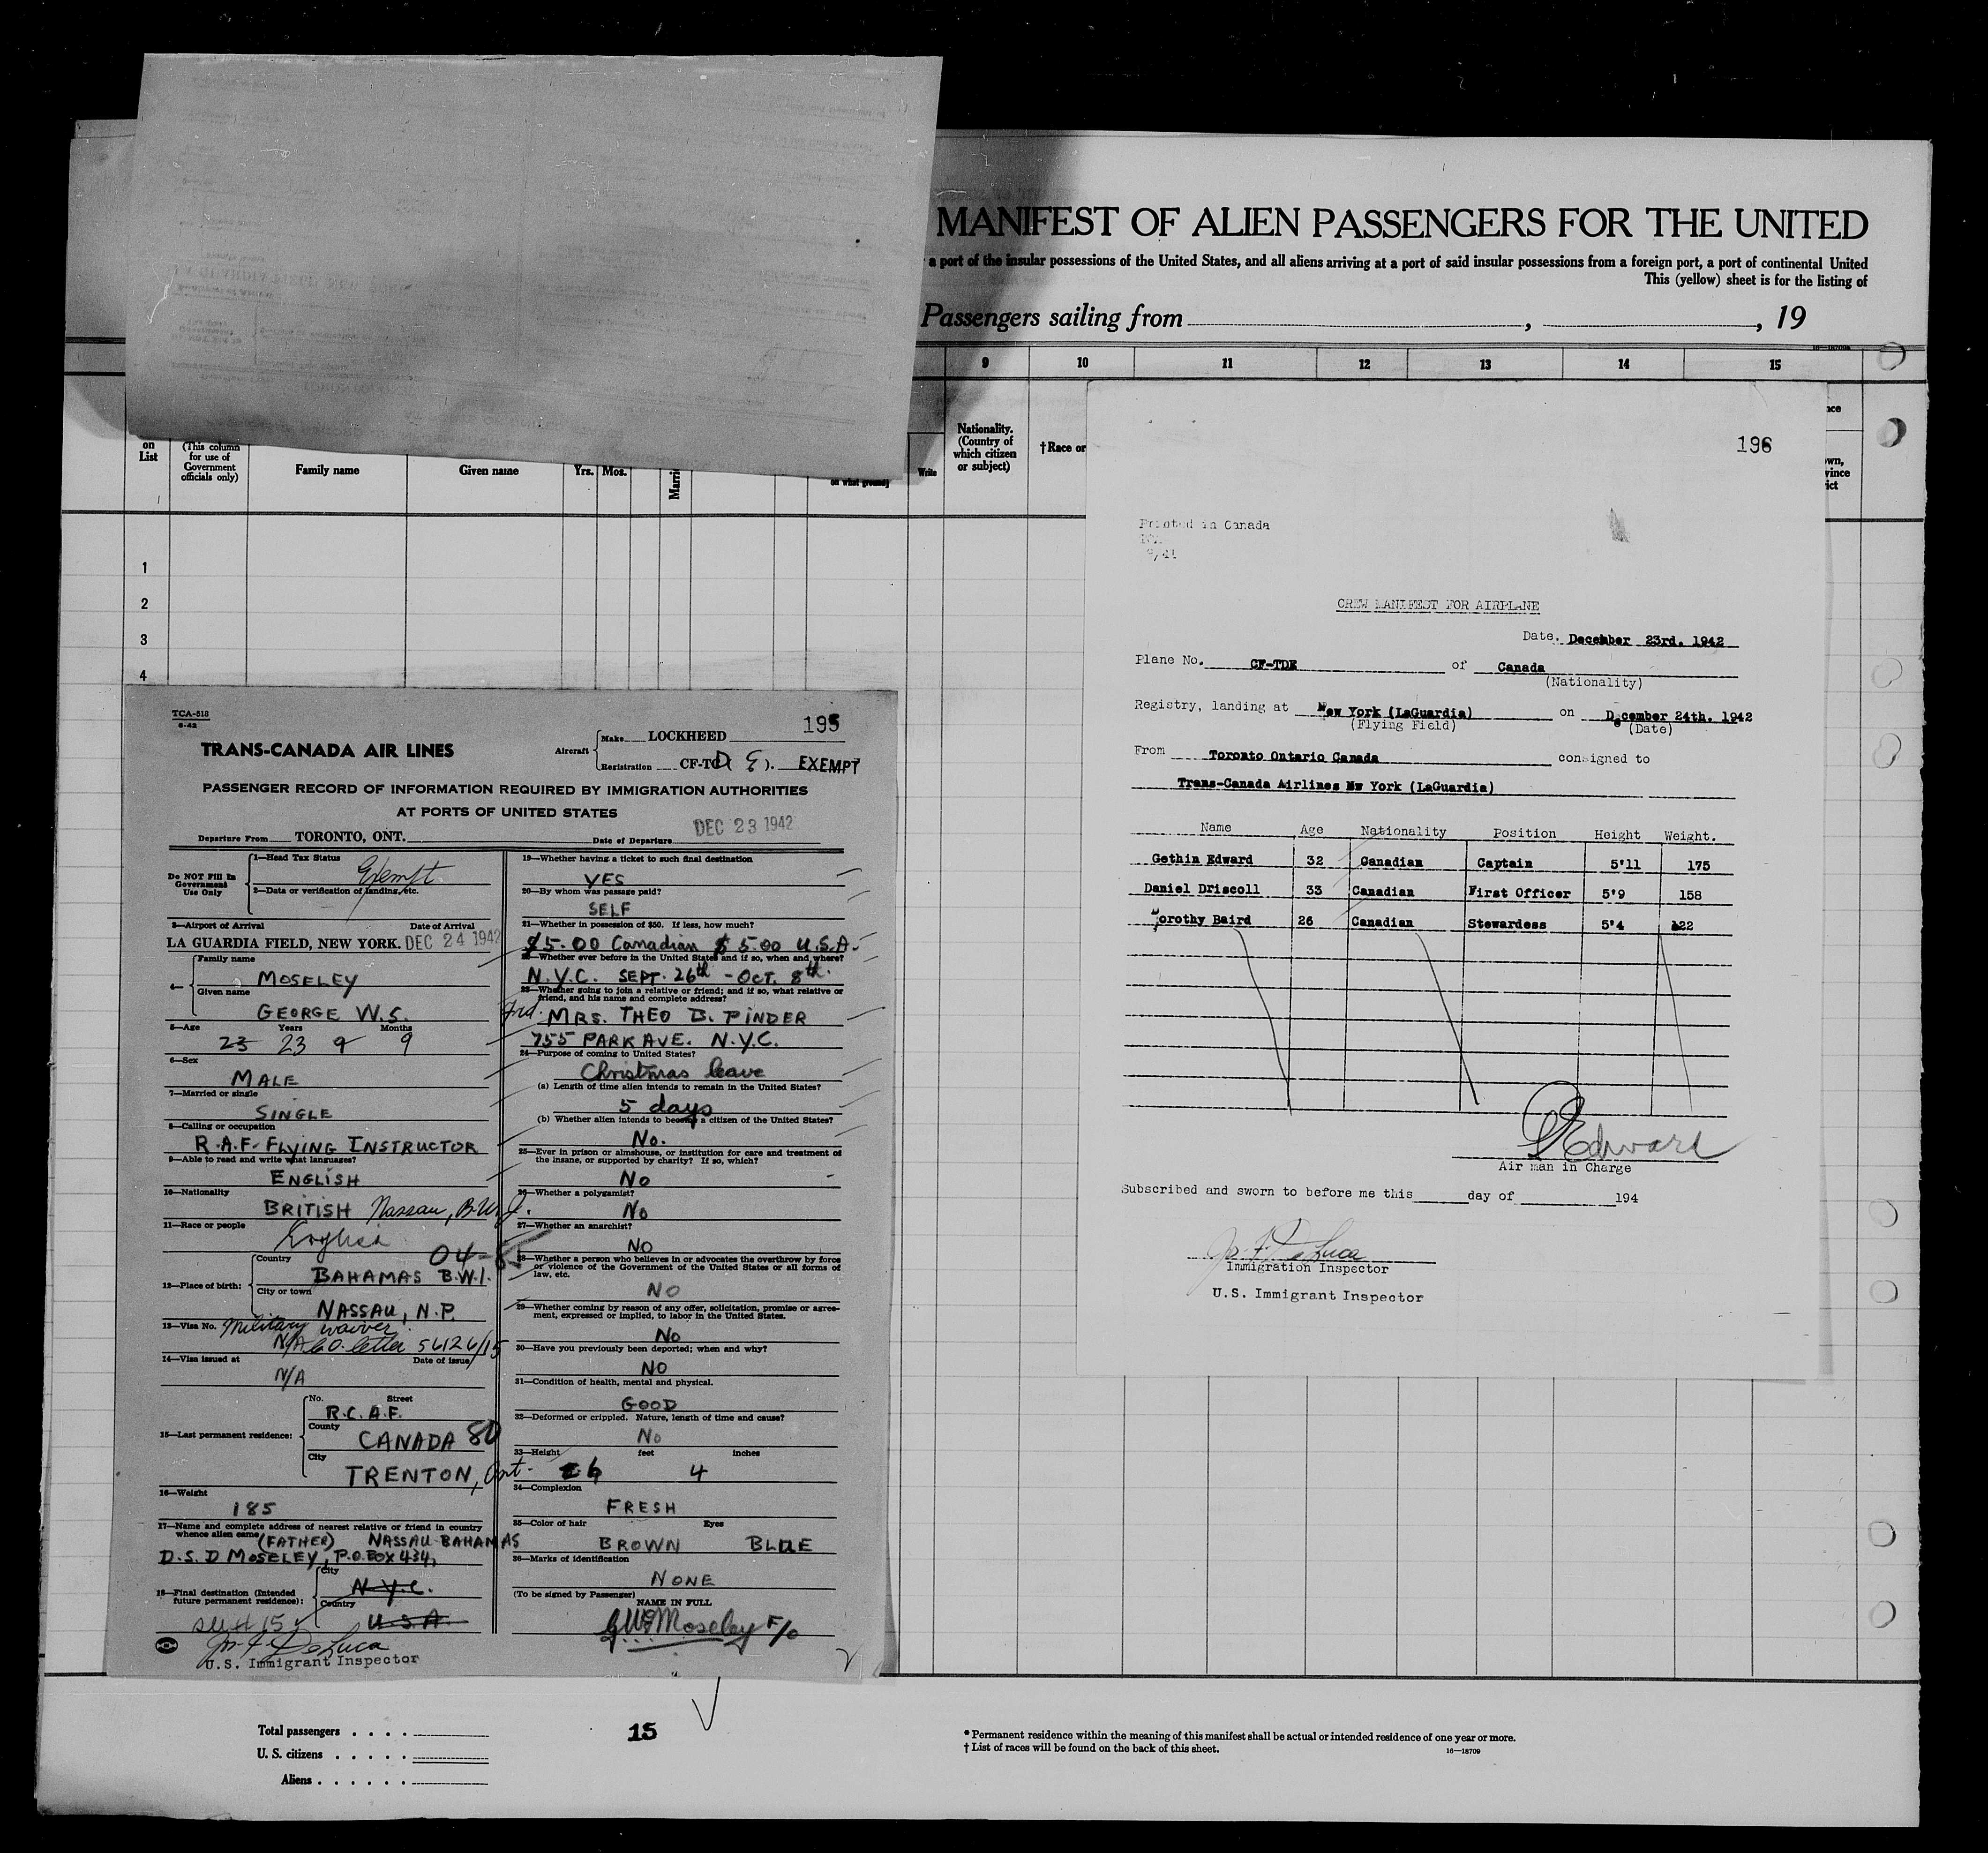 MANIFEST OF ALIEN PASSENGERS FOR THE UNITED
a port of the insular possessions of the United States, and all aliens arriving at a port of said insular possessions from a foreign port, a port of continental United
This (yellow) sheet is for the listing of
Passengers sailing from , , 19
9 10 11 12 13 14 15
on
List
(This column
for use of
Government
officials only)
Family name
Given name
Yrs. Mos.
Write
Nationality.
(Country of
which citizen
or subject)
†Race or
1
2
3
4
TCA-518
6-42
195
TRANS-CANADA AIR LINES
Aircraft
Make LOCKHEED
Registration CF-TC D E ). EXEMPT
PASSENGER RECORD OF INFORMATION REQUIRED BY IMMIGRATION AUTHORITIES
AT PORTS OF UNITED STATES
Departure From TORONTO, ONT. Date of Departure DEC 23 1942
Do NOT Fill In
Government
Use Only
1—Head Tax Status
Exempt
2—Data or verification of landing, etc.
3—Airport of Arrival Date of Arrival
LA GUARDIA FIELD, NEW YORK. DEC 24 1942
4—
Family name
MOSELEY
Given name
GEORGE W.S.
5—Age Years Months
23 23 9 9
6—Sex
MALE
7—Married or single
SINGLE
8—Calling or occupation
R.A.F. FLYING INSTRUCTOR
9—Able to read and write what languages?
ENGLISH
10—Nationality
BRITISH Nassau, B.W.I.
11—Race or people
English
04-85
12—Place of birth:
Country
BAHAMAS B.W.I.
City or town
NASSAU, N.P.
13—Visa No. Military waiver
N/A C.O. letter 56126/15
14—Visa issued at Date of issue
N/A
15—Last permanent residence:
No. Street
R.C.A.F.
County
CANADA 80
City
TRENTON, Ont.
16—Weight
185
17—Name and complete address of nearest relative or friend in country
whence alien came (FATHER) NASSAU BAHAMAS
D.S.D MOSELEY, P.O. BOX 434,
18—Final destination (Intended
future permanent residence):
City
N.Y.C.
Country
U.S.A.
see # 15
Jos. F. DeLuca
U.S. Immigrant Inspector
19—Whether having a ticket to such final destination
YES
20—By whom was passage paid?
SELF
21—Whether in possession of $50. If less, how much?
$5.00 Canadian $5.00 U.S.A.
22—Whether ever before in the United States and if so, when and where?
N.Y.C. SEPT. 26th - OCT. 8th.
23—Whether going to join a relative or friend; and if so, what relative or
friend, and his name and complete address?
Frd. MRS. THEO B. PINDER
755 PARK AVE. N.Y.C.
24—Purpose of coming to United States?
Christmas leave
(a) Length of time alien intends to remain in the United States?
5 days
(b) Whether alien intends to become a citizen of the United States?
No.
25—Ever in prison or almshouse, or institution for care and treatment of
the insane, or supported by charity? If so, which?
No
26—Whether a polygamist?
No
27—Whether an anarchist?
NO
28—Whether a person who believes in or advocates the overthrow by force
or violence of the Government of the United States or all forms of
law, etc.
NO
29—Whether coming by reason of any offer, solicitation, promise or agree-
ment, expressed or implied, to labor in the United States.
No
30—Have you previously been deported; when and why?
NO
31—Condition of health, mental and physical.
GOOD
32—Deformed or crippled. Nature, length of time and cause?
No
33—Height feet inches
6 4
34—Complexion
FRESH
35—Color of hair Eyes
BROWN BLUE
36—Marks of identification
NONE
(To be signed by Passenger)
NAME IN FULL
GWS Moseley F/O
196
Printed in Canada
9/41
CREW MANIFEST FOR AIRPLANE
Date. December 23rd. 1942
Plane No. CF-TDE of Canada
(Nationality)
Registry, landing at New York (LaGuardia) on December 24th. 1942
(Flying Field) (Date)
From Toronto Ontario Canada consigned to
Trans-Canada Airlines Nw York (LaGuardia)
Name Age Nationality Position Height Weight.
Gethin Edward 32 Canadian Captain 5'11 175
Daniel Driscoll 33 Canadian First Officer 5'9 158
Dorothy Baird 26 Canadian Stewardess 5'4 122
GEdward
Air man in Charge
Subscribed and sworn to before me this day of 194
Jos. F. DeLuca
Immigration Inspector
U.S. Immigrant Inspector
Total passengers . . . .
U. S. citizens . . . . .
Aliens . . . . . .
15
* Permanent residence within the meaning of this manifest shall be actual or intended residence of one year or more.
† List of races will be found on the back of this sheet.
16—18709